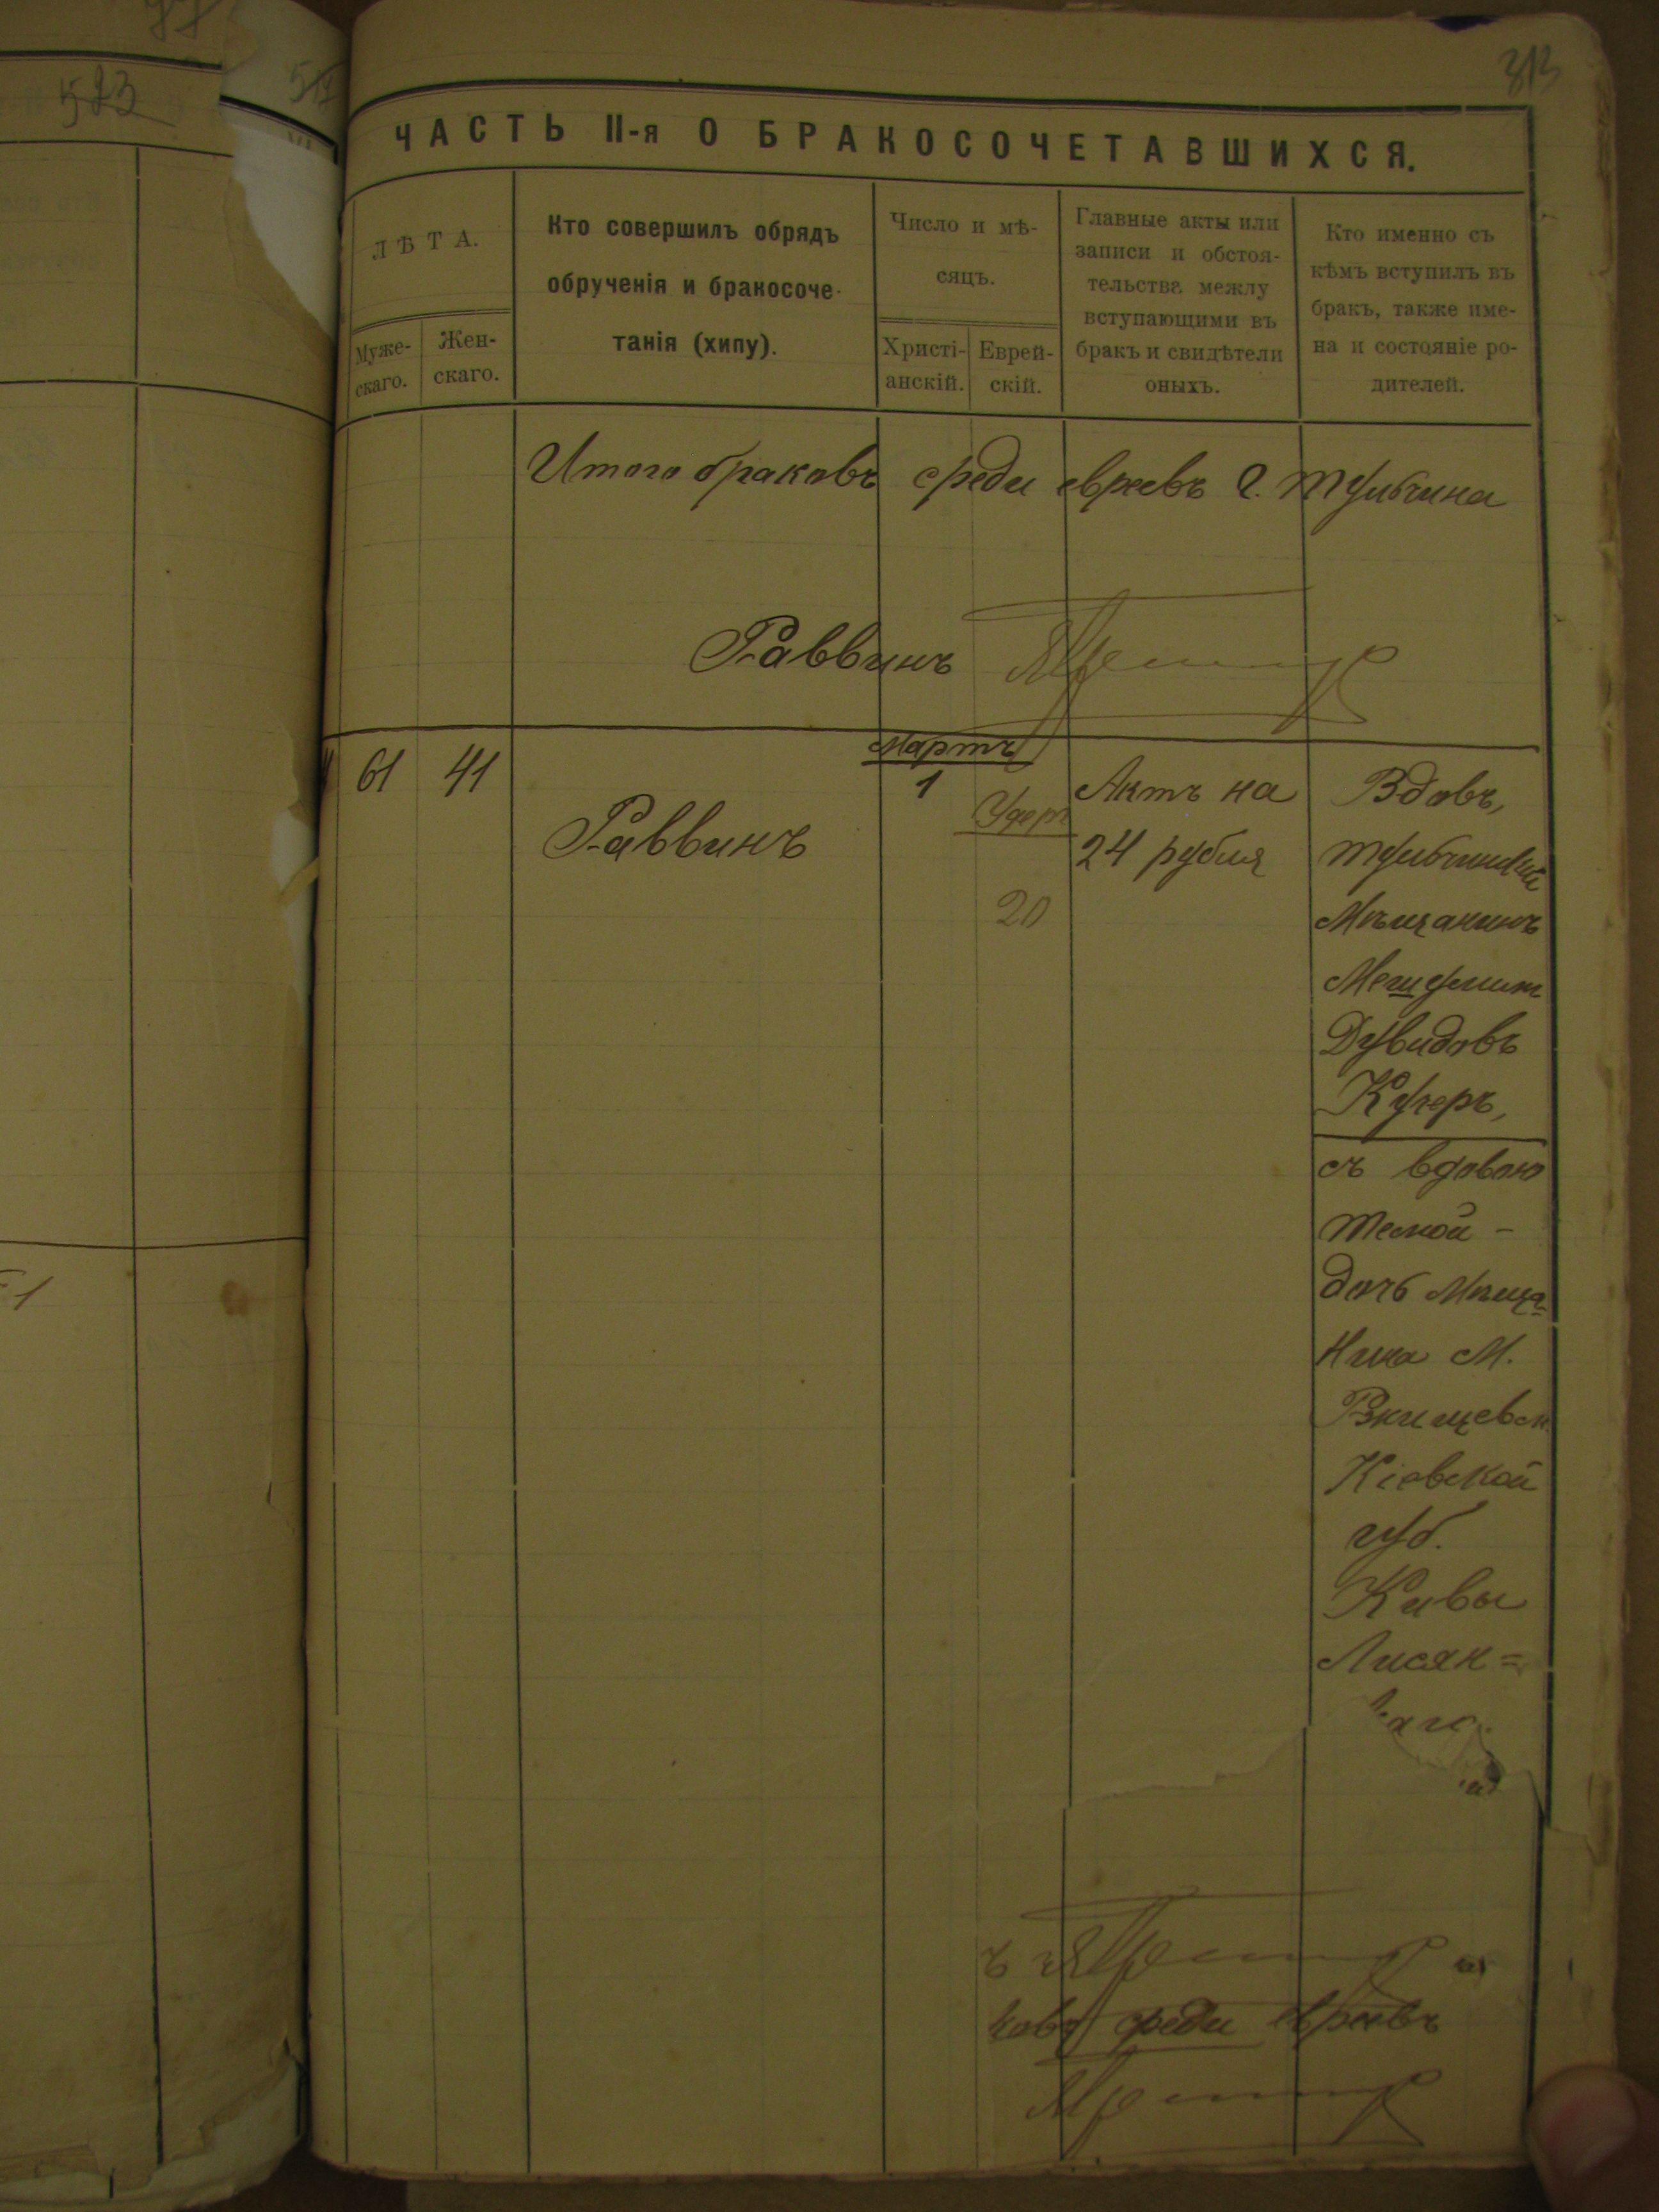 523
313
ЧАСТЬ II-я О БРАКОСОЧЕТАВШИХСЯ.
ЛѢТА.
Муже-
скаго.
Жен-
скаго.
Кто совершилъ обрядъ
обрученія и бракосоче-
танія (хипу).
Число и мѣ-
сяцъ.
Христі-
анскій.
Еврей-
скій.
Главные акты или
записи и обстоя-
тельства между
вступающими въ
бракъ и свидѣтели
оныхъ.
Кто именно съ
кѣмъ вступилъ въ
бракъ, также име-
на и состояніе ро-
дителей.
Итого браковъ среди евреевъ г. Тульчина
Раввинъ
61
41
Раввинъ
Мартъ
1
20
Актъ на
24 рубля
Вдовъ,
Тульчинскій
Мѣщанинъ
Мешулим
Дувидовъ
Кучеръ,
съ вдовою
Темой -
дочь Мѣща-
нина М.
Ржищевск.
Кіевской
губ.
Кивы
Лисян=
каго.
ковъ среди евреевъ